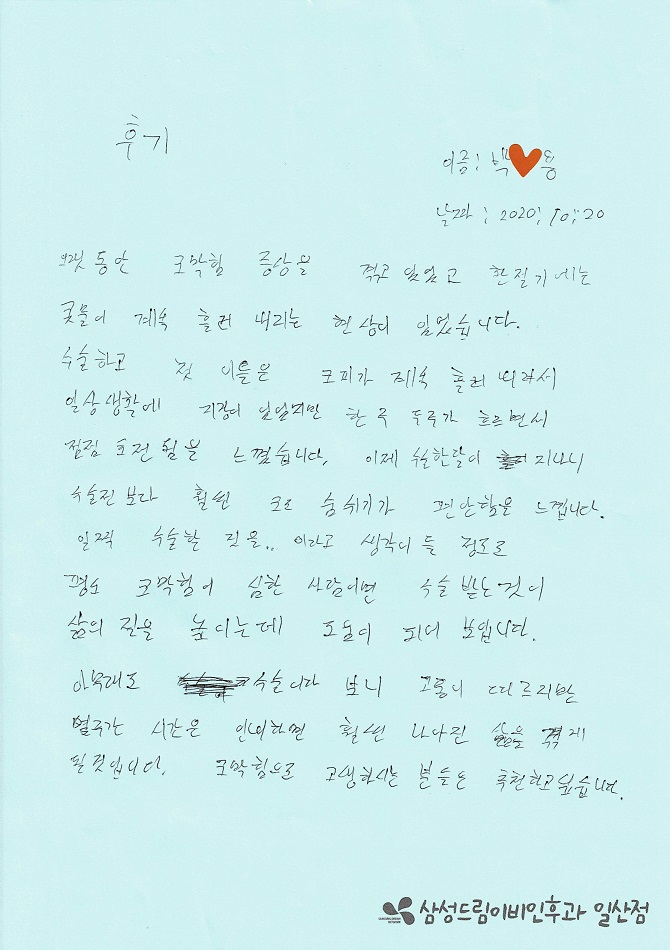 후기
이름: 백 용
날짜 : 2020, 10, 20
오랫동안 코막힘 증상을 겪고 있었고 환절기에는
콧물이 계속 흘러 내리는 현상이 있었습니다.
수술하고 첫 이틀은 코피가 계속 흘러 내려서
일상생활에 지장이 있었지만 한 주 두주가 흐르면서
점점 호전 됨을 느꼈습니다. 이제 수술한달이 지나니
수술전 보다 훨씬 코로 숨쉬기가 편안함을 느낍니다.
일찍 수술할 것을.. 이라고 생각이 들 정도로
평소 코막힘이 심한 사람이면 수술 받는 것이
삶의 질을 높이는데 도움이 되어 보입니다.
아무래도 코수술이다 보니 고통이 따르지만
몇주간 시간은 인내하면 훨씬 나아진 삶을 겪게
될 것입니다. 코막힘으로 고생하시는 분들은 추천하고 싶습니다.
삼성드림이비인후과 일산점